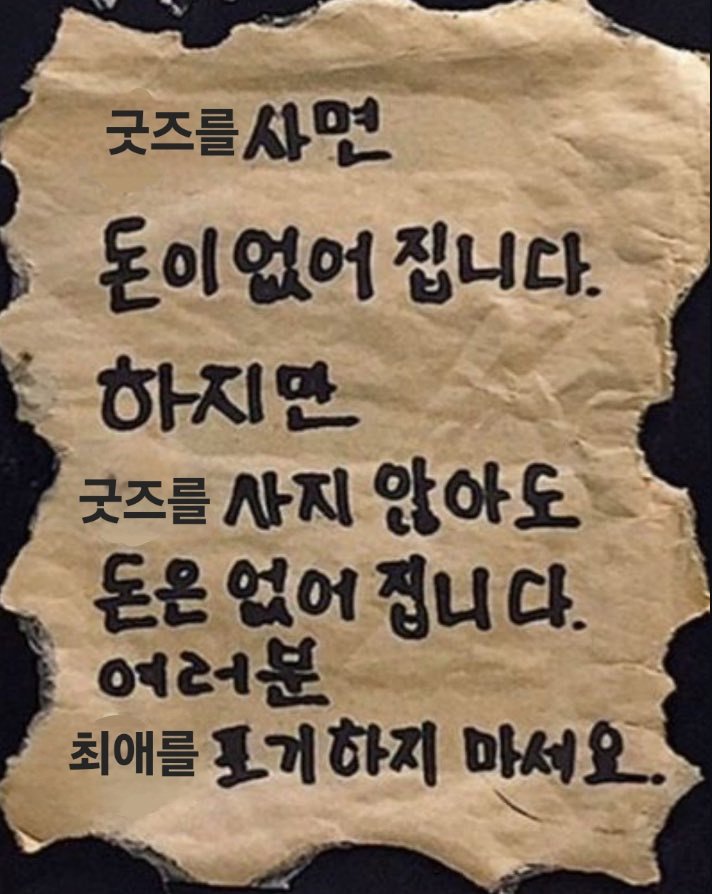 굿즈를 사면
돈이 없어 집니다.
하지만
굿즈를 사지 않아도
돈은 없어 집니다.
여러분
최애를 포기하지 마세요.